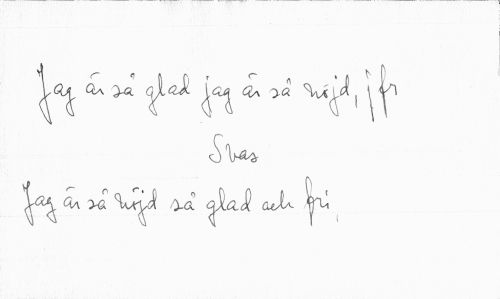 Jag är så glad jag är så nöjd, jfr
Svas
Jag är så nöjd så glad och fri,